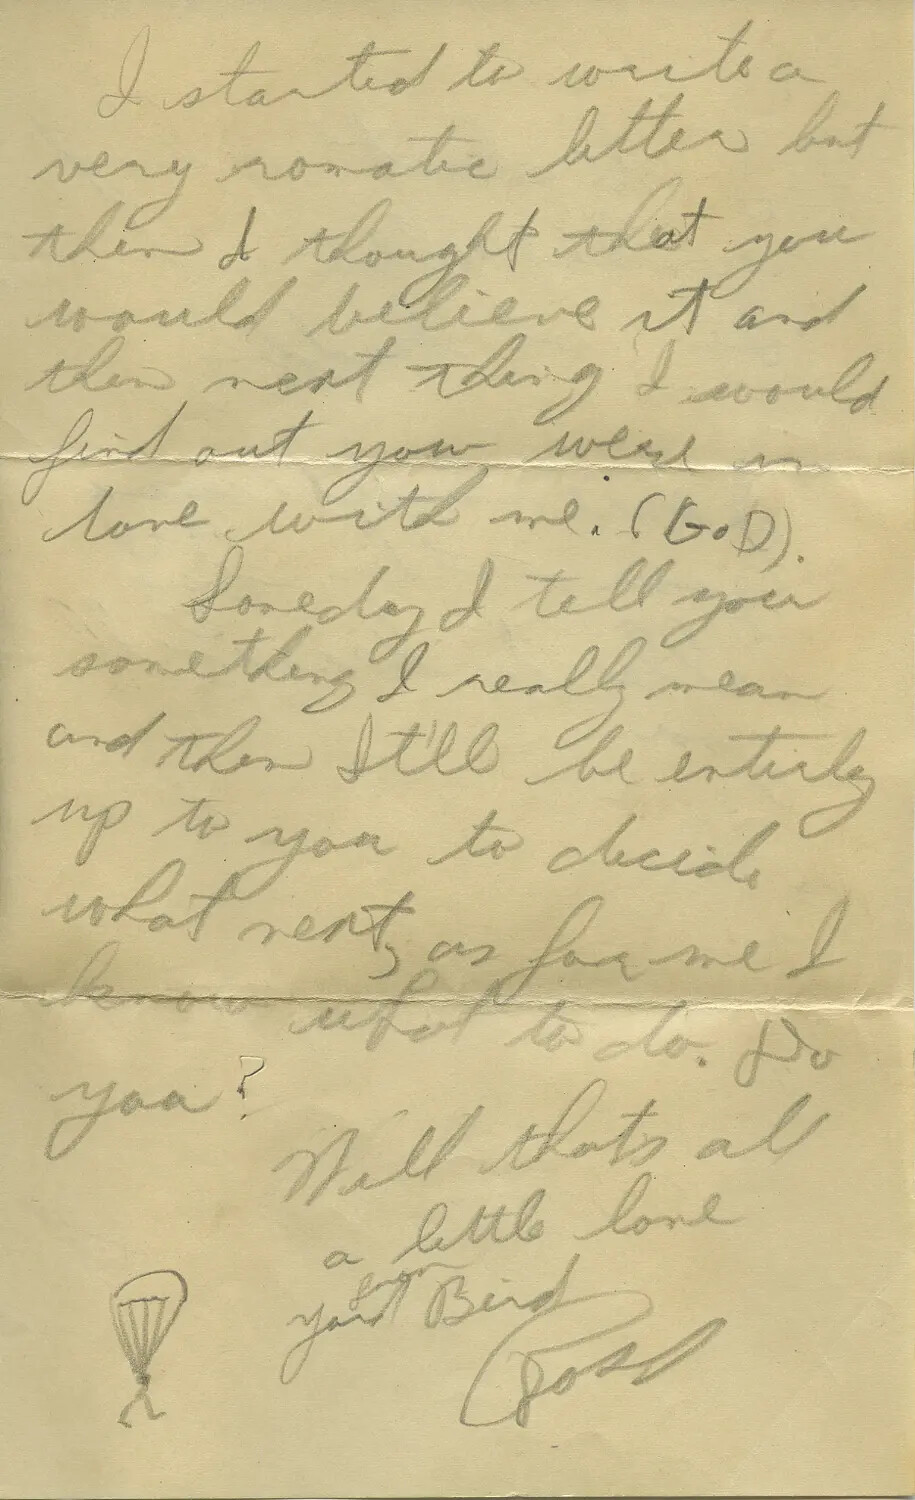 I started to write a
very romatic letter but
then I thought that you
would believe it and
then next thing I would
find out you were in
love with me. (GOD).
Someday I tell you
something I really mean
and then It'll be entirly
up to you to decide
what next, as for me I
know what to do. Do
you?
Well thats all
a little love
from
your Bird